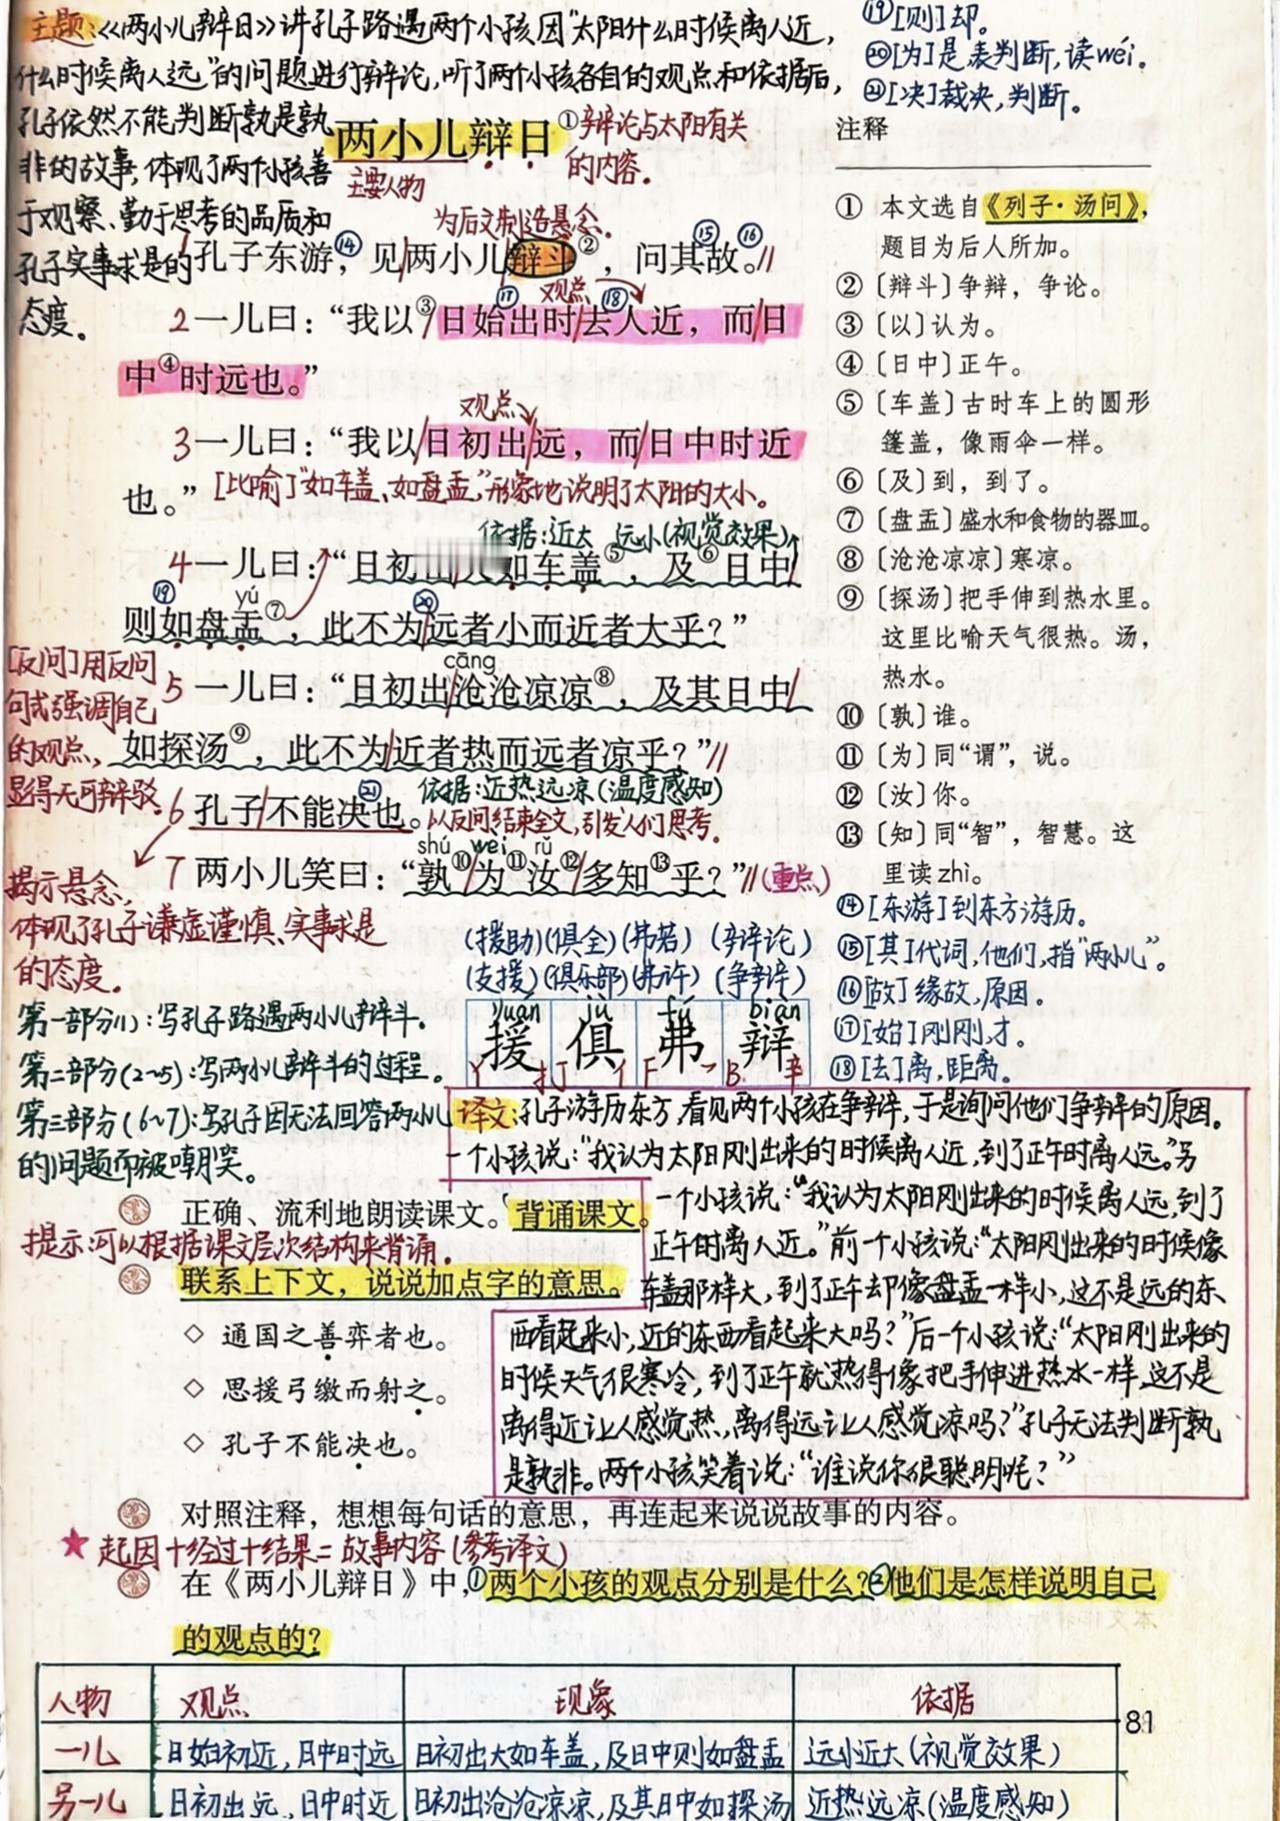 主题:《两小儿辩日》讲孔子路遇两个小孩因“太阳什么时候离人近，
什么时候离人远”的问题进行辩论，听了两个小孩各自的观点和依据后，
孔子依然不能判断孰是孰
非的故事，体现了两个小孩善
于观察、勤于思考的品质和
孔子实事求是的
态度。
两小儿辩日
①辩论与太阳有关
的内容。
主要人物
为后文制造悬念。
1 孔子东游⑭，见两小儿辩斗②，问其⑮故⑯。
观点
2 一儿曰：“我以③日始⑰出时去⑱人近，而日
中④时远也。”
观点
3 一儿曰：“我以日初出远，而日中时近
也。”
[比喻]“如车盖、如盘盂”，形象地说明了太阳的大小。
依据：近大 远小(视觉效果)
4 一儿曰：“日初出大如车盖⑤，及⑥日中
yú
则⑲如盘盂⑦，此不为⑳远者小而近者大乎？”
cāng
5 一儿曰：“日初出沧沧凉凉⑧，及其日中
如探汤⑨，此不为近者热而远者凉乎？”
[反问]用反问
句式强调自己
的观点，
显得无可辩驳。
依据：近热远凉(温度感知)
6 孔子不能决㉑也。
以反问结束全文，引发人们思考。
shú wéi rǔ
7 两小儿笑曰：“孰⑩为⑪汝⑫多知⑬乎？”(重点)
揭示悬念，
体现了孔子谦虚谨慎、实事求是
的态度。
第一部分(1)：写孔子路遇两小儿辩斗.
第二部分(2~5)：写两小儿辩斗的过程。
第三部分(6~7)：写孔子因无法回答两小儿
的问题而被嘲笑。
(援助)(俱全)(弗若) (辩论)
(支援)(俱乐部)(弗许) (争辩)
yuán jù fú biàn
援 俱 弗 辩
⑲[则]却.
⑳[为]是，表判断，读wéi.
㉑[决]裁决，判断。
注释
① 本文选自《列子·汤问》，
题目为后人所加。
②〔辩斗〕争辩，争论。
③〔以〕认为。
④〔日中〕正午。
⑤〔车盖〕古时车上的圆形
篷盖，像雨伞一样。
⑥〔及〕到，到了。
⑦〔盘盂〕盛水和食物的器皿。
⑧〔沧沧凉凉〕寒凉。
⑨〔探汤〕把手伸到热水里。
这里比喻天气很热。汤，
热水。
⑩〔孰〕谁。
⑪〔为〕同“谓”，说。
⑫〔汝〕你。
⑬〔知〕同“智”，智慧。这
里读 zhì。
⑭[东游]到东方游历.
⑮[其]代词，他们，指“两小儿”。
⑯[故]缘故，原因。
⑰[始]刚刚，才.
⑱[去]离，距离。
译文：孔子游历东方，看见两个小孩在争辩，于是询问他们争辩的原因。
一个小孩说：“我认为太阳刚出来的时候离人近，到了正午时离人远。”另
一个小孩说：“我认为太阳刚出来的时候离人远，到了
正午时离人近。”前一个小孩说：“太阳刚出来的时候像
车盖那样大，到了正午却像盘盂一样小，这不是远的东
西看起来小，近的东西看起来大吗？”后一个小孩说：“太阳刚出来的
时候天气很寒冷，到了正午就热得像把手伸进热水一样，这不是
离得近让人感觉热，离得远让人感觉凉吗？”孔子无法判断孰
是孰非。两个小孩笑着说：“谁说你很聪明呢？”
正确、流利地朗读课文。背诵课文。
提示：可以根据课文层次结构来背诵.
联系上下文，说说加点字的意思。
◇ 通国之善弈者也。
◇ 思援弓缴而射之。
◇ 孔子不能决也。
对照注释，想想每句话的意思，再连起来说说故事的内容。
★起因+经过+结果=故事内容(参考译文)
在《两小儿辩日》中，①两个小孩的观点分别是什么？②他们是怎样说明自己
的观点的？
人物 观点 现象 依据
81
一儿 日始初近，日中时远 日初出大如车盖，及日中则如盘盂 远小近大(视觉效果)
另一儿 日初出远，日中时近 日初出沧沧凉凉，及其日中如探汤 近热远凉(温度感知)